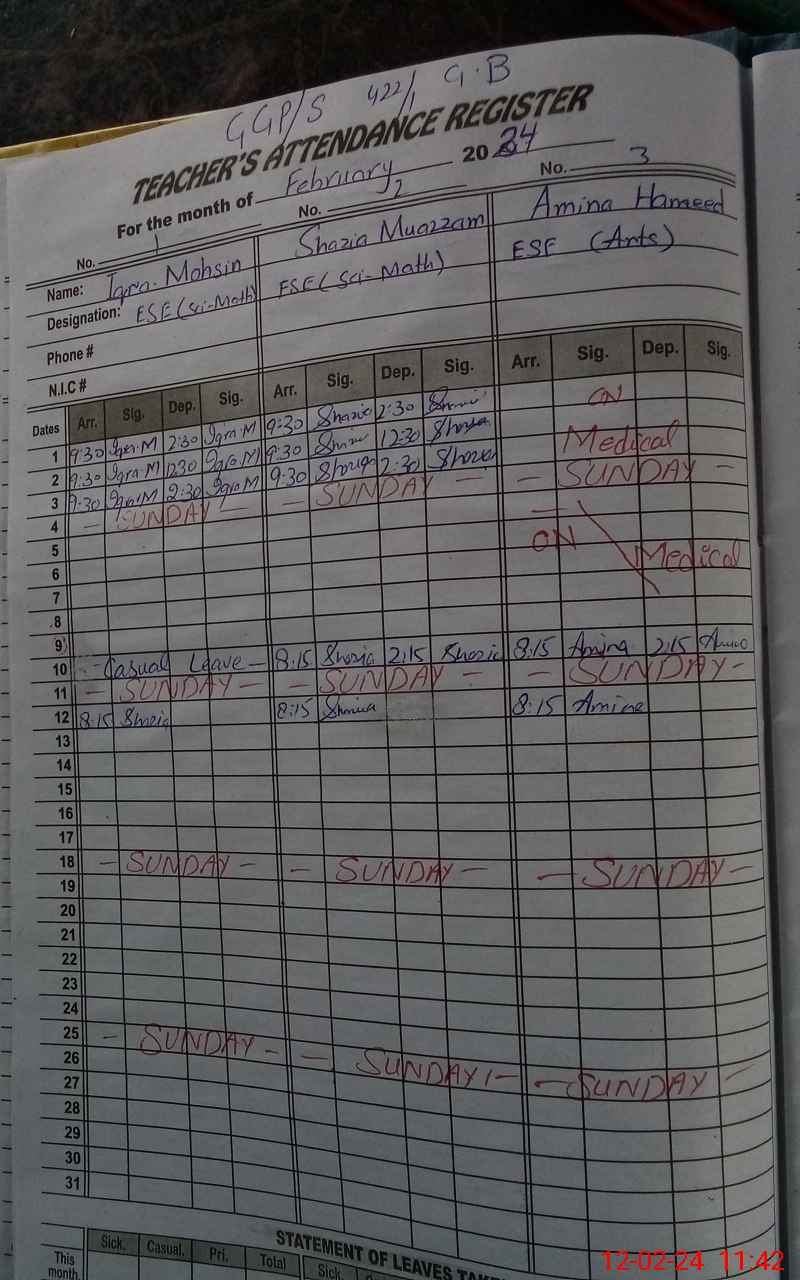 GGP/S 422/1 G.B
TEACHER'S ATTENDANCE REGISTER
For the month of February 2024
No. 1 No. 2 No. 3
Name: Iqra. Mohsin Shazia Muazzam Amina Hameed
Designation: ESE (Sci-Math) ESE (Sci-Math) ESE (Arts)
Phone #
N.I.C #
Dates Arr. Sig. Dep. Sig. Arr. Sig. Dep. Sig. Arr. Sig. Dep. Sig.
1 9:30 Iqra.M 2:30 Iqra.M 9:30 Shazia 2:30 ON
2 9:30 Iqra.M 1230 Iqra.M 9:30 12:30 Medical
3 9:30 Iqra.M 2:30 Iqra.M 9:30 2:30 - SUNDAY -
4 - SUNDAY - - SUNDAY -
5 ON Medical
6
7
8
9
10 - Casual Leave - 8:15 Shazia 2:15 Shazia 8:15 Amina 2:15
11 - SUNDAY - - SUNDAY - - SUNDAY -
12 8:15 8:15 8:15 Amina
13
14
15
16
17
18 - SUNDAY - - SUNDAY - - SUNDAY -
19
20
21
22
23
24
25 - SUNDAY - - SUNDAY - - SUNDAY -
26
27
28
29
30
31
STATEMENT OF LEAVES
This month Sick. Casual. Pri. Total Sick.
12-02-24 11:42